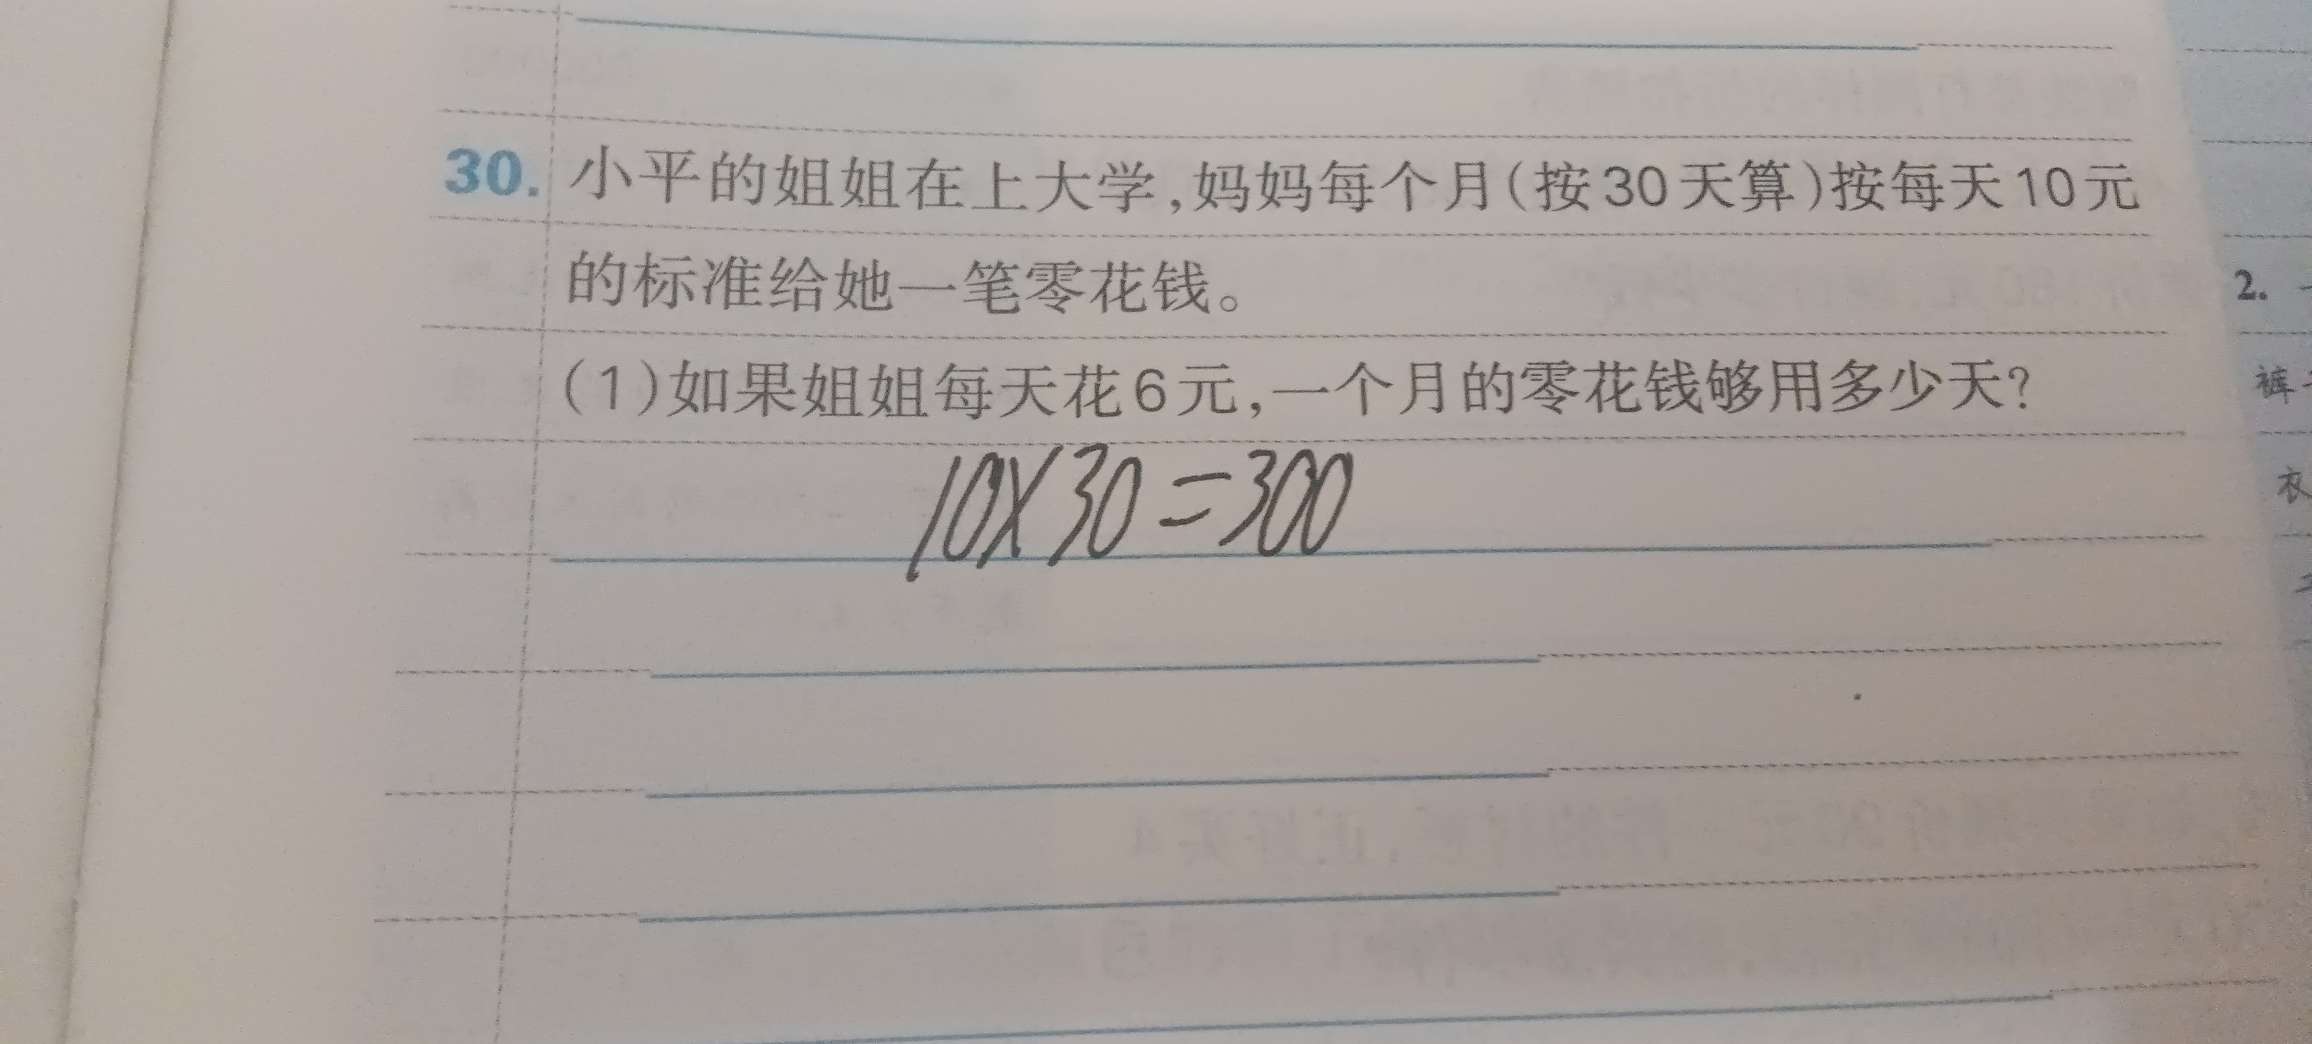 30. 小平的姐姐在上大学,妈妈每个月(按30天算)按每天10元
的标准给她一笔零花钱。
(1)如果姐姐每天花6元,一个月的零花钱够用多少天?
10×30=300
2.
裤
衣